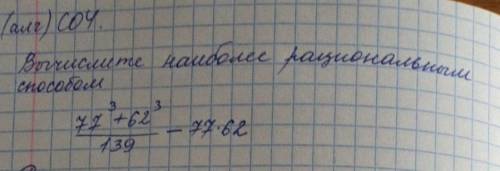 (алг) СОЧ.
Вычислите наиболее рациональным
способом
77³+62³
139
− 77·62